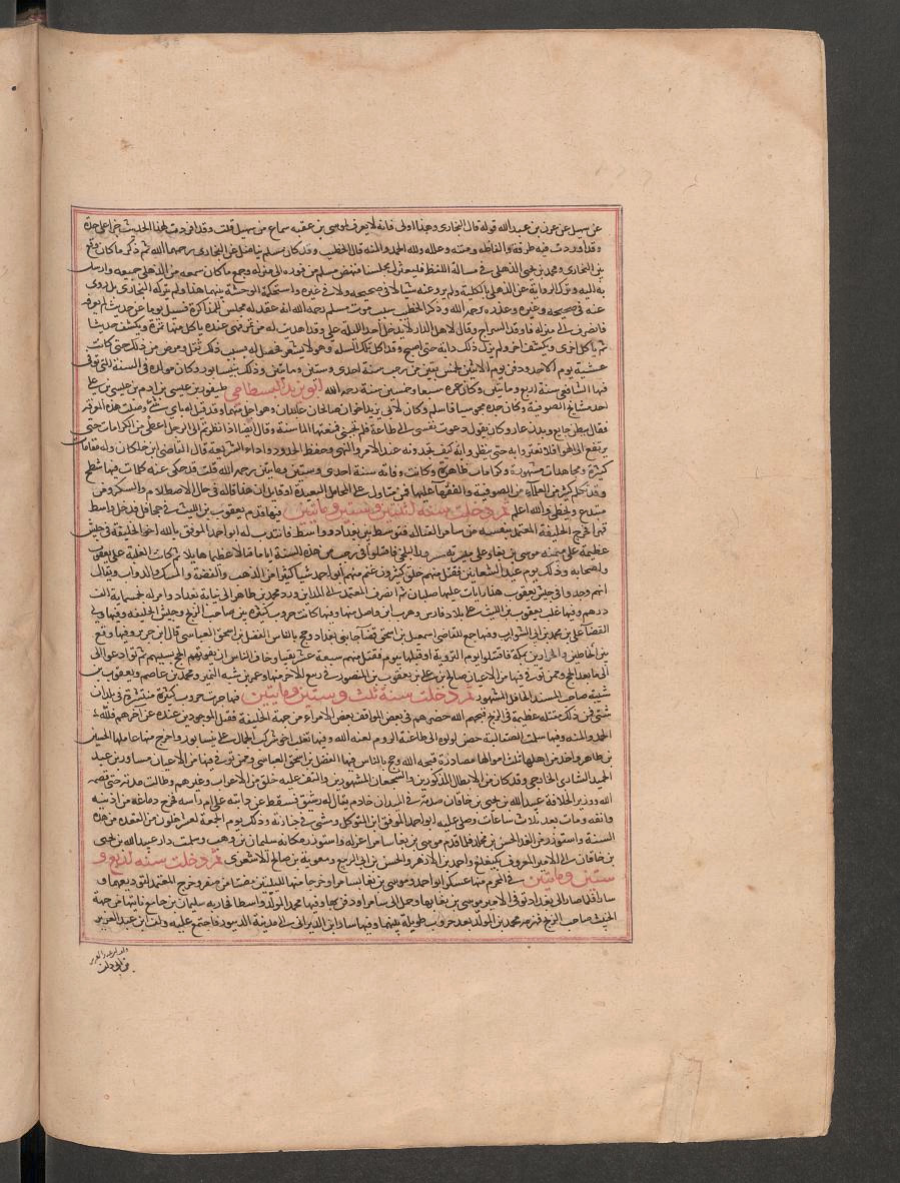 عن سهيل عن عون بن عبد الله قوله قال البخاري وهذا اولى فانه لا يعرف لموسى بن عقبه سماع من سهيل قلت وقد افردت لهذا الحديث جزا على حدة
وقد اوردت فيه طرقه والفاظه ومتنه وعلله ولله الحمد والمنه قال الخطيب وقد كان مسلم يناضل عن البخاري رحمهما الله ثم ذكر ما كان وقع
بين البخاري ومحمد بن يحيى الذهلي في مسالة اللفظ
به اليه وترك الرواية عن الذهلي بالكلية ولم يرو عنه شيا لا في صحيحه ولا في غيره واستحكمت الوحشة بينهما هذا ولم يترك البخاري بل روى
عنه في صحيحه وغيره وعذره رحمه الله وذكر الخطيب سبب موت مسلم رحمه الله انه عقد له مجلس للمذاكرة فسيل يوما عن حديث لم يعرفه
فانصرف الى منزله فاوقد السراج وقال لاهل الدار لا يدخل احد الليلة علي وقد اهديت له سلة من تمر فهي عنده ياكل منها تمرة ويكشف حديثا
ثم ياكل اخرى ويكشف اخر ولم يزل ذلك دابه حتى اصبح وقد اكل تلك السله وهو لا يشعر فحصل له بسبب ذلك ثقل ومرض من ذلك حتى كانت
عشية يوم الاحد ودفن يوم الاثنين لخمس بقين من رجب سنة احدى وستين ومايتين وذلك بنيسابور وكان مولده في السنة التي توفي
فيها الشافعي سنة اربع ومايتين وكان عمره سبعا وخمسين سنة رحمه الله ابو يزيد البسطامي طيفور بن عيسى بن ادم بن عيسى بن علي
احد مشايخ الصوفية وكان جده مجوسيا فاسلم وكان لابي يزيد اخوان صالحان عابدان وهو اجل منهما وقد قيل له باي شي وصلت هذه المعرفة
فقال ببطن جايع وبدن عار وكان يقول دعوت نفسي الى طاعة فلم تجبني فمنعتها الماء سنة وقال ايضا اذا نظرتم الى الرجل اعطي من الكرامات حتى
يرتفع في الهوا فلا تغتروا به حتى تنظروا به كيف تجدونه عند الامر والنهي وحفظ الحدود واداء الشريعة قال القاضي ابن خلكان وله مقامات
كثيرة ومجاهدات مشهورة وكرامات ظاهرة وكانت وفاته سنة احدى وستين ومايتين رحمه الله قلت قد حكي عنه كلمات فيها شطح
وقد حكم كثير من العلماء من الصوفية والفقهاء عليها فمن متاول على المحامل البعيدة او قايل ان هذا قاله في حال الاصطلام والسكر ومن
مبتدع ومخطي والله اعلم ثم دخلت سنة ثنتين وستين ومايتين فيها قدم يعقوب بن الليث في جحافل فدخل واسط
قهرا فخرج الخليفة المعتمد بنفسه من سامرا لقتاله فتوسط بين بغداد وواسط فانتدب له ابو احمد الموفق بالله اخو الخليفة في جيش
عظيمة على ميمنه موسى بن بغا وعلى ميسرته مسرور البلخي فاقتتلوا في رجب من هذه السنة اياما قتالا عظيما هايلا ثم كانت الغلبة على يعقوب
واصحابه وذلك يوم عيد الشعانين فقتل منهم خلق كثيرون وغنم منهم ابو احمد شيا كثيرا من الذهب والفضة والمسك والدواب ويقال
انهم وجدوا في جيش يعقوب هذا رايات عليها صلبان ثم انصرف المعتمد الى المداين ورد محمد بن طاهر الى نيابة بغداد وامر له بخمسماية الف
درهم وفيها غلب يعقوب بن الليث على بلاد فارس وهرب ابن واصل منها وفيها كانت حروب كثيرة بين صاحب الزنج وجيش الخليفه وفيها ولي
القضاء علي بن محمد بن ابي الشوارب وفيها جمع للقاضي اسمعيل بن اسحق قضا جانبي بغداد وحج بالناس الفضل بن اسحق العباسي قال ابن جرير وفيها وقع
بين الحناطين والجزارين بمكة فاقتتلوا يوم التروية او قبلها بيوم فقتل منهم سبعة عشر نفسا وخاف الناس ان يفوتهم الحج بسببهم ثم توادعوا الى
الى ما بعد الحج وممن توفي فيها من الاعيان صالح بن علي بن يعقوب بن المنصور في ربيع الاخر منها وعمر بن شبه النميري ومحمد بن عاصم ويعقوب بن
شيبة صاحب المسند الحافل المشهور ثم دخلت سنة ثلث وستين ومايتين فيها جرت حروب كثيرة منتشرة في بلدان
شتى فمن ذلك مقتله عظيمة في الزنج قبحهم الله حصرهم في بعض المواقف بعض الامراء من جهة الخليفة فقتل الموجودين عنده عن اخرهم فلله
الحمد والمنه وفيها سلمت الصقالبة حصن لولوه الى طاغية الروم لعنه الله وفيها تغلب اخو شركب الجمال على نيسابور واخرج منها عاملها الحسين
بن طاهر واخذ من اهلها ثلث اموالها مصادرة قبحه الله وحج بالناس فيها الفضل بن اسحق العباسي وممن توفي فيها من الاعيان مساور بن عبد
الحميد الشاري الخارجي وقد كان من الابطال المذكورين والشجعان المشهورين والتف عليه خلق من الاعراب وغيرهم وطالت مدته حتى قصمه
الله ووزير الخلافة عبيد الله بن يحيى بن خاقان صدمه في الميدان خادم يقال له رشيق فسقط عن دابته على ام راسه فخرج دماغه من اذنيه
وانفه ومات بعد ثلاث ساعات وصلى عليه ابو احمد الموفق ابن المتوكل ومشى في جنازته وذلك يوم الجمعة لعشر خلون من القعده من هذه
السنة واستوزر من الغد الحسن بن مخلد فلما قدم موسى بن بغا سامرا عزله واستوزر مكانه سليمان بن وهب وسلمت دار عبيد الله بن يحيى
بن خاقان الى الامير المعروف بكيغلغ واحمد بن الازهر والحسن بن ابي الربيع ومعوية بن صالح الاشعري ثم دخلت سنه اربع و
ستين ومايتين في المحرم منها عسكر ابو احمد وموسى بن بغا بسامرا وخرجا منها لليلتين مضتا من صفر وخرج المعتمد لتوديعهما و
سارا فلما صارا الى بغداد توفي الامير موسى بن بغا بها وحمل الى سامرا ودفن بها وفيها محمد المولد واسطا فحاربه سليمان بن جامع نايبها من جهة
الخبيث صاحب الزنج فهزمه محمد بن المولد بعد حروب طويلة بينهما وفيها سار ابن الديراني الى مدينة الدينور فاجتمع عليه دلف ابن عبد العزيز
بن ابي دلف